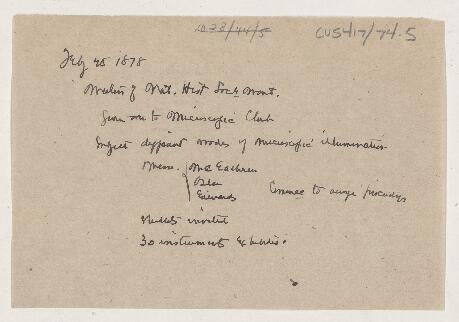 1038/74/5
CUS417/74.5
Feby 25 1878
Meeting of Nat. Hist Socy Mont.
Given over to Microscopic Club
Subject different modes of microscopic illumination
Messrs. McEachran
Osler
Edwards
Commee to arrange proceedgs
Students invited
30 instruments exhibited.